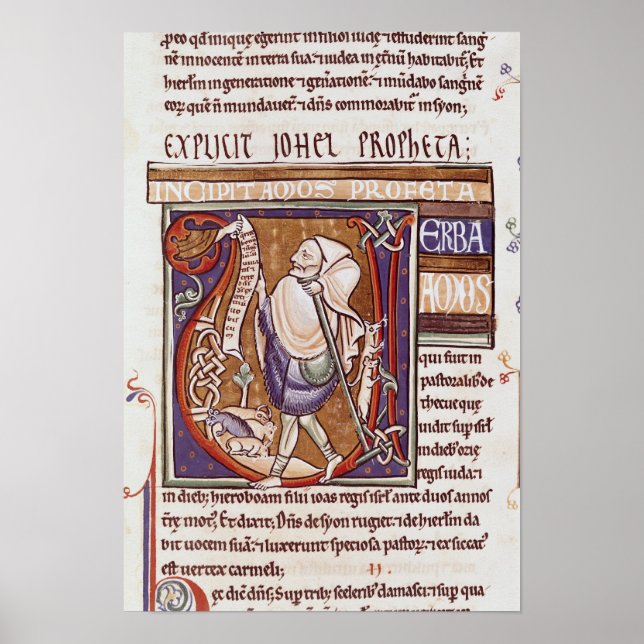 ꝓeo qď inique egerint in filioſ iude ⁊ effuderint ſang̃
nẽ innocentẽ in terra ſua: ⁊ iudea in et̃nũ habitabit̃, Et
hierl̃m in generatione ⁊ gñatione: ⁊ mũdabo ſang̃nẽ
eorꝫ quẽ ñ mundauerã: ⁊ dñs commorabit̃ in syon;
EXPLICIT IOHEL PROPHETA;
INCIPIT AMOS PROFETA
ERBA
AMOS
qui fuit in
paſtoralib⁹ de
thecue que
uidit ſup iſrl̃
in dieb⁹ ozie
regiſ iuda: ⁊
in dieb; hieroboam filii ioas regiſ iſrl̃ ante duos annoſ
tr̃e mot⁹, Et dixit; Dñs de syon rugiet: ⁊ de hierl̃m da
bit uocem ſuã: ⁊ luxerunt ſpecioſa paſtoꝝ: ⁊ exſiccat⁹
eſt uertex carmeli;
.II.
ec dicit dñſ; Sup trib; ſcelerib; damaſci: ⁊ ſup qua